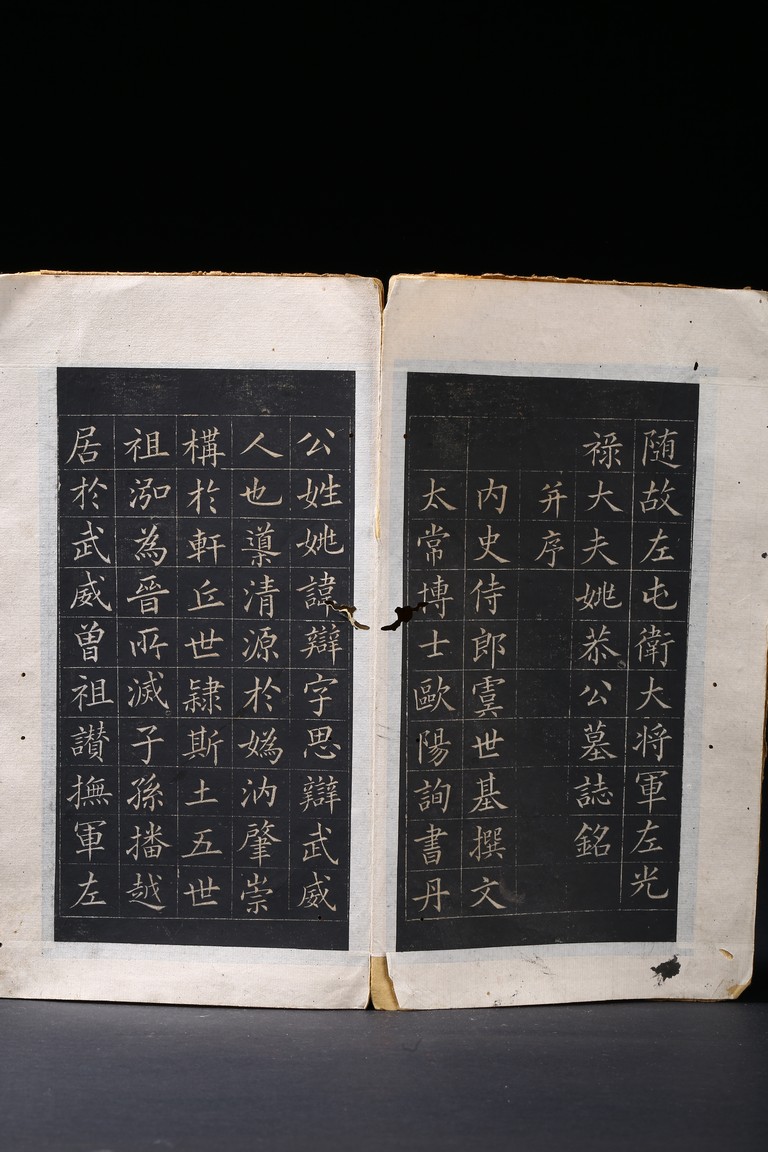 随故左屯衛大将軍左光
禄大夫姚恭公墓誌銘
并序
内史侍郎虞世基撰文
太常博士歐陽詢書丹
公姓姚諱辯字思辯武威
人也導清源於媯汭肇崇
構於軒丘世隸斯土五世
祖泓為晉所滅子孫播越
居於武威曾祖讃撫軍左